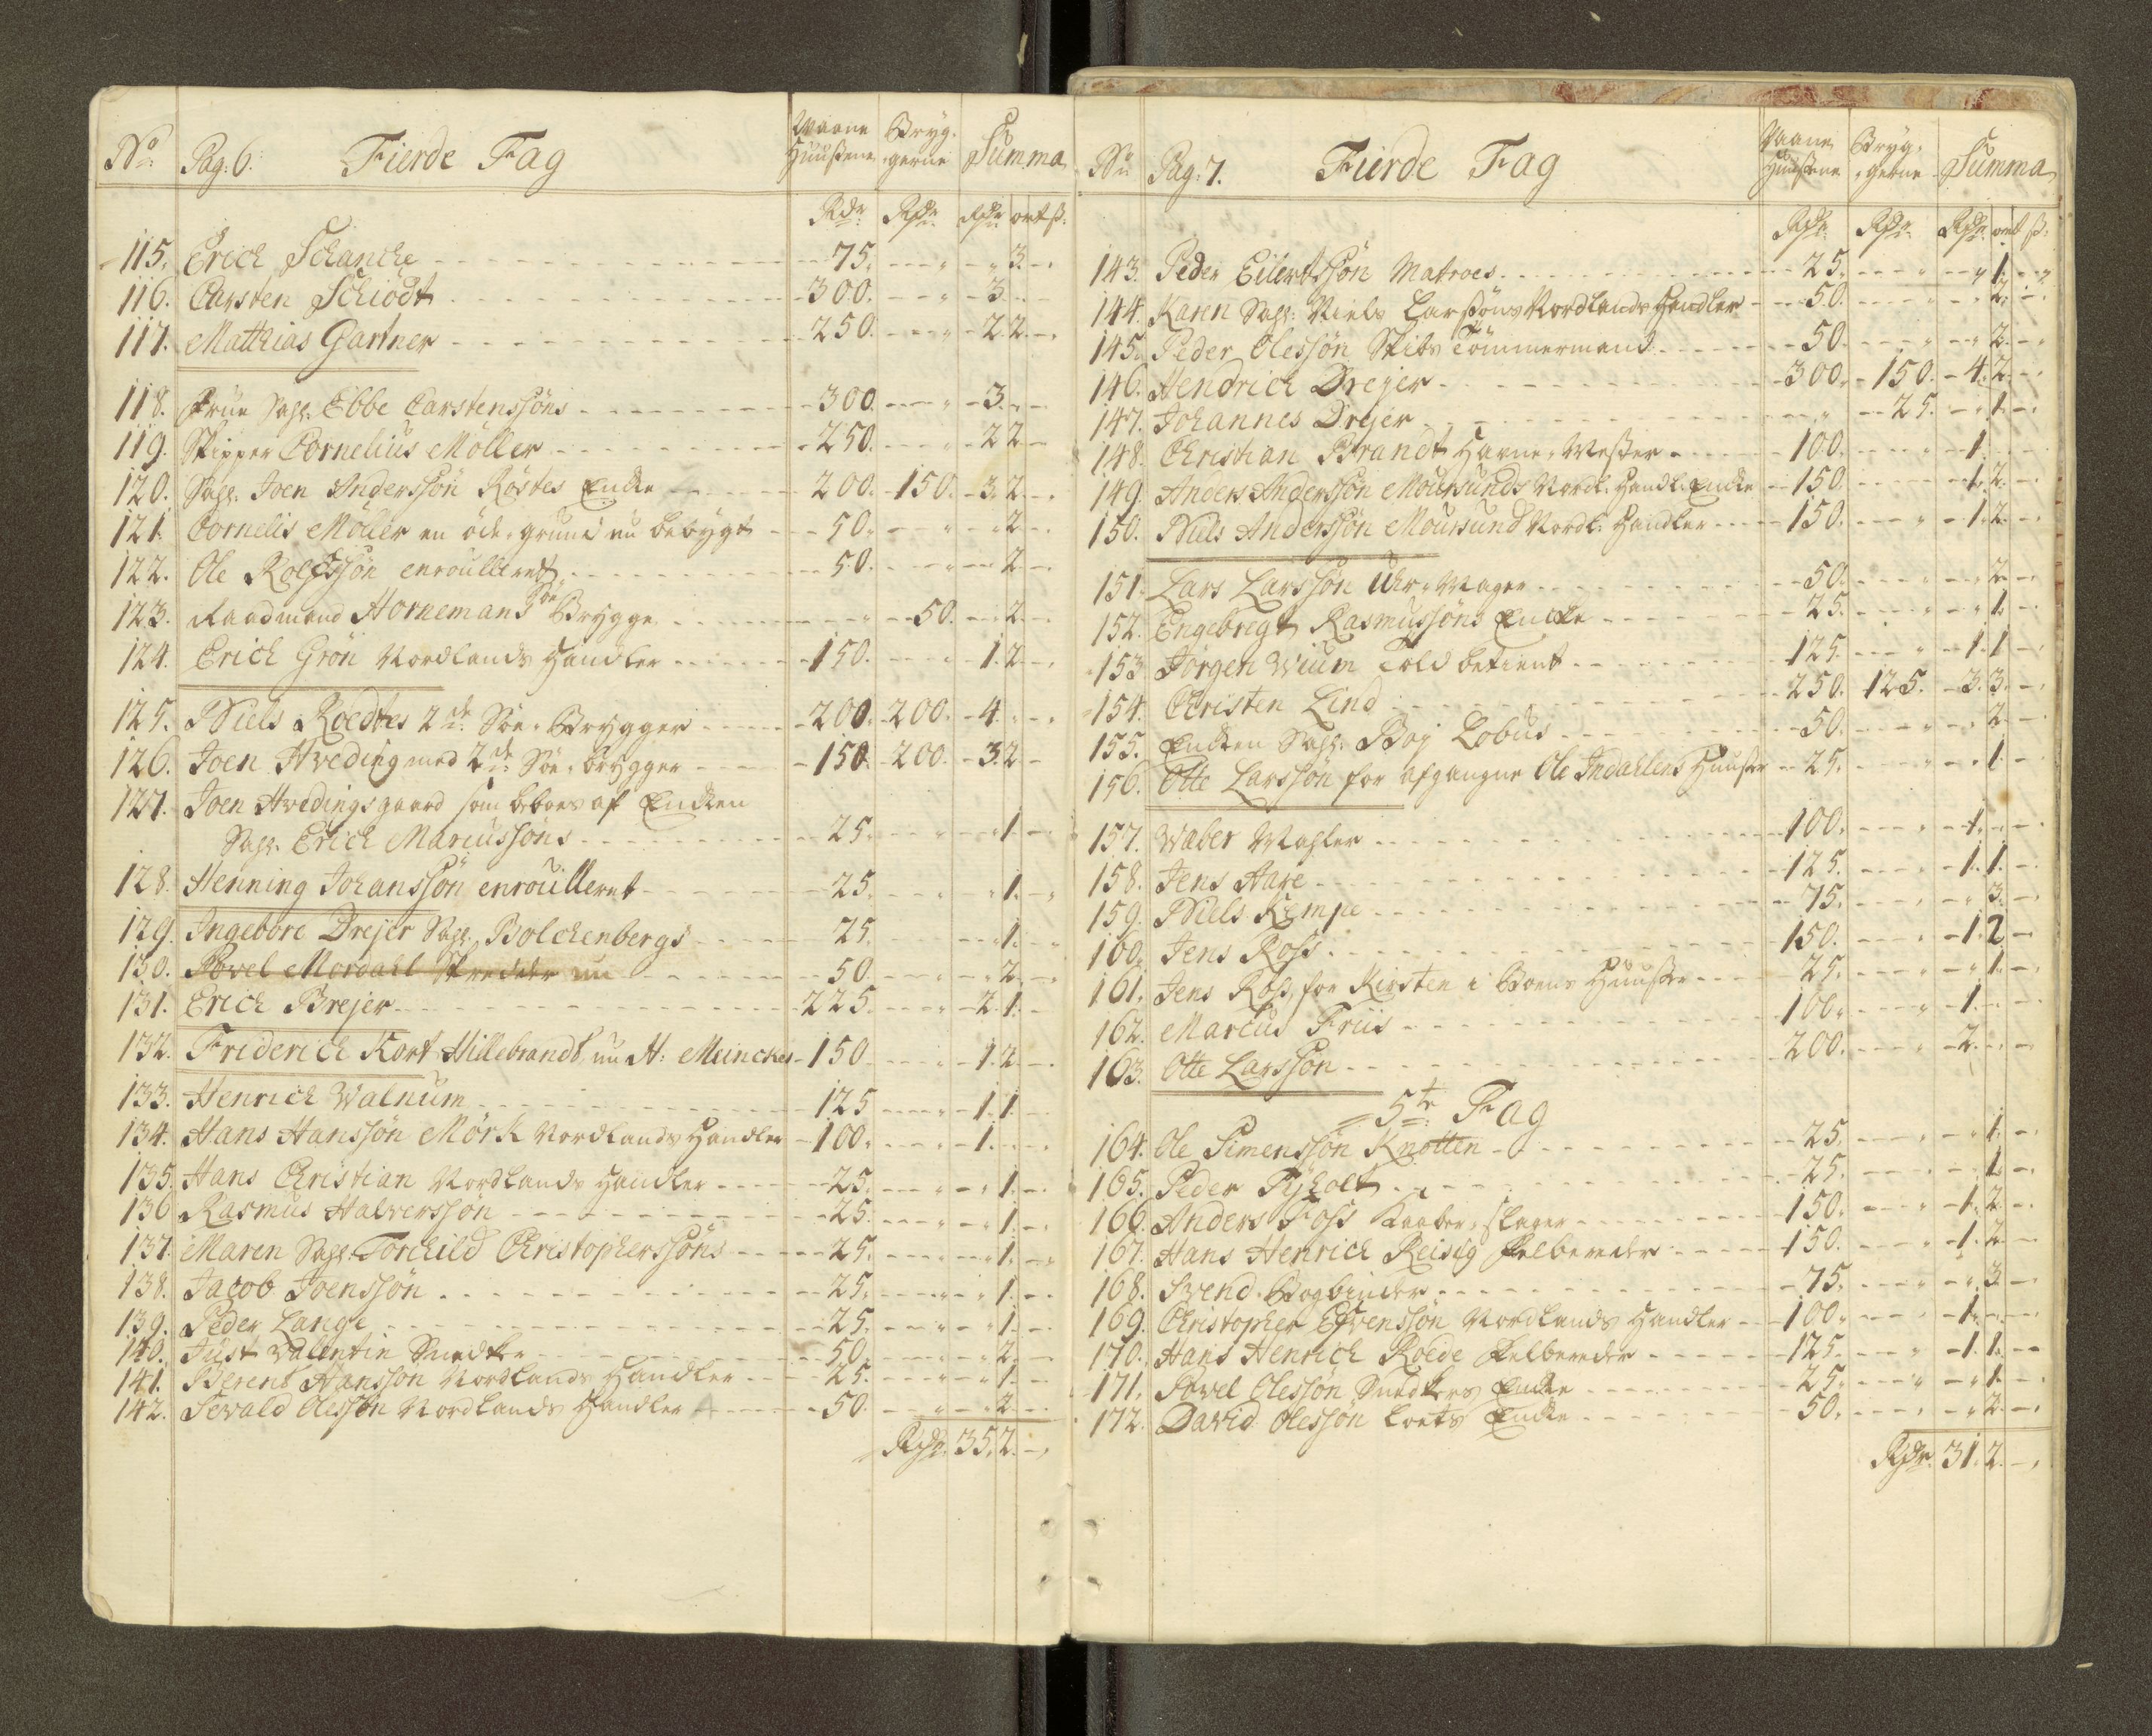 No. Pag: 6. Fierde Fag Waane Huusene Bryg-gerne Summa
Rdr. Rdr. Rdr. ort ß.
115. Erich Schancke 75. " " 3. -
116. Carsten Schiödt 300. " 3. - -
117. Matthias Gartner 250. " 2 2. -
118. Frue Sahl. Ebbe Carstenssöns 300. " 3. " -
119. Skipper Cornelius Möller 250. " 2 2 -
120. Sahl. Joen Anderssön Röstes Encke 200. 150. 3. 2. -
121. Cornelis Möller en öde-grund nu bebygt 50. " " 2 -
122. Ole Rolfssön enroulleret 50. " 2 -
123. Raadmand Hornemans Söe Brygge " 50. 2 -
124. Erich Grön Nordlands Handler 150. " 1. 2 -
125. Niels Roedtes 2de Söe-Brygger 200. 200. 4. " -
126. Joen Hveding med 2de Söe-brygger 150. 200. 3 2 -
127. Joen Hvedings gaard som beboes af Encken
Sahl. Erich Marcussöns 25. " " 1. -
128. Henning Johanssön enroulleret 25. " " 1. -
129. Ingebore Drejer Sahl. Bolckenbergs 25. " 1. -
130. Povel Mordahl Skredder nu 50. " " 2. -
131. Erich Brejer 225. " 2. 1. -
132. Friderich Kort Hillebrandt, nu H: Meincke 150. " 1. 2. -
133. Henrich Walnum 125 " 1. 1. -
134. Hans Hanssön Mörk Nordlands Handler 100. " 1. " -
135. Hans Christian Nordlands Handler 25. " " 1. -
136 Rasmus Halverssön 25. " " 1. -
137. Maren Sahl. Torchild Christopherssöns 25. " " 1. -
138. Jacob Joenssön 25. " " 1. -
139. Peder Lange 25. " " 1. -
140. Just Valentin Snedker 50. " " 2. -
141. Berent Hansson Nordlands Handler 25. " " 1. -
142. Sevald Olessön Nordlands Handler 50. " " 2. -
Rdr. 35. 2. -
No Pag: 7. Fierde Fag Vaane Huusene Bryg-gerne Summa
Rdr. Rdr. Rdr. ort ß.
143. Peder Eilertssön Matroes 25. " " 1. -
144. Karen Sahl: Niels Larssöns Nordlands Handler 50. " " 2. -
145. Peder Olessön Skibs Tömmermand 50. " " 2. -
146. Hendrich Drejer 300. 150. 4. 2. -
147. Johannes Drejer " 25. " 1. -
148. Christian Brandt Havne-Mester 100. " 1. -
149. Anders Anderssön Moursunds Nordl. Handl. Encke 150. " 1. 2. -
150. Niels Anderssön Moursund Nordl. Handler 150. " 1. 2. -
151. Lars Larssön Uhr-Mager 50. " " 2. -
152. Engebregt Rasmussöns Encke 25. " " 1. -
153. Jörgen Wium Told betient 125. " 1. 1. -
154. Christen Lind 250. 125. 3. 3. -
155. Encken Sahl: Boy Lobus 50. " " 2. -
156. Otte Larssön for afgangne Ole Indahlens Huuser 25. " " 1. -
157. Waber Mahler 100. " 1. " -
158. Jens Aare 125. " 1. 1. -
159. Niels Kempe 75. " " 3. -
160. Jens Ross 150. " 1. 2 -
161. Jens Ross, for Kirsten i Boens Huuser 25. " " 1. -
162. Marcus Friis 100. " 1. " -
163. Otte Larssön 200. " 2. " -
5te Fag
164. Ole Simenssön Knotten 25. " " 1. -
165. Peder Tyholt 25. " " 1. -
166. Anders Foss Kaaber-slager 150. " 1. 2. -
167. Hans Henrich Reisig Felbereder 150. " 1. 2. -
168. Svend Bogbinder 75. " " 3. -
169. Christopher Evenssön Nordlands Handler 100. " 1. " -
170. Hans Henrich Roede Felbereder 125. " 1. 1. -
171. Povel Olessön Snedkers Encke 25. " " 1. -
172. David Olessön Loets Encke 50. " " 2. -
Rdr. 31. 2. -